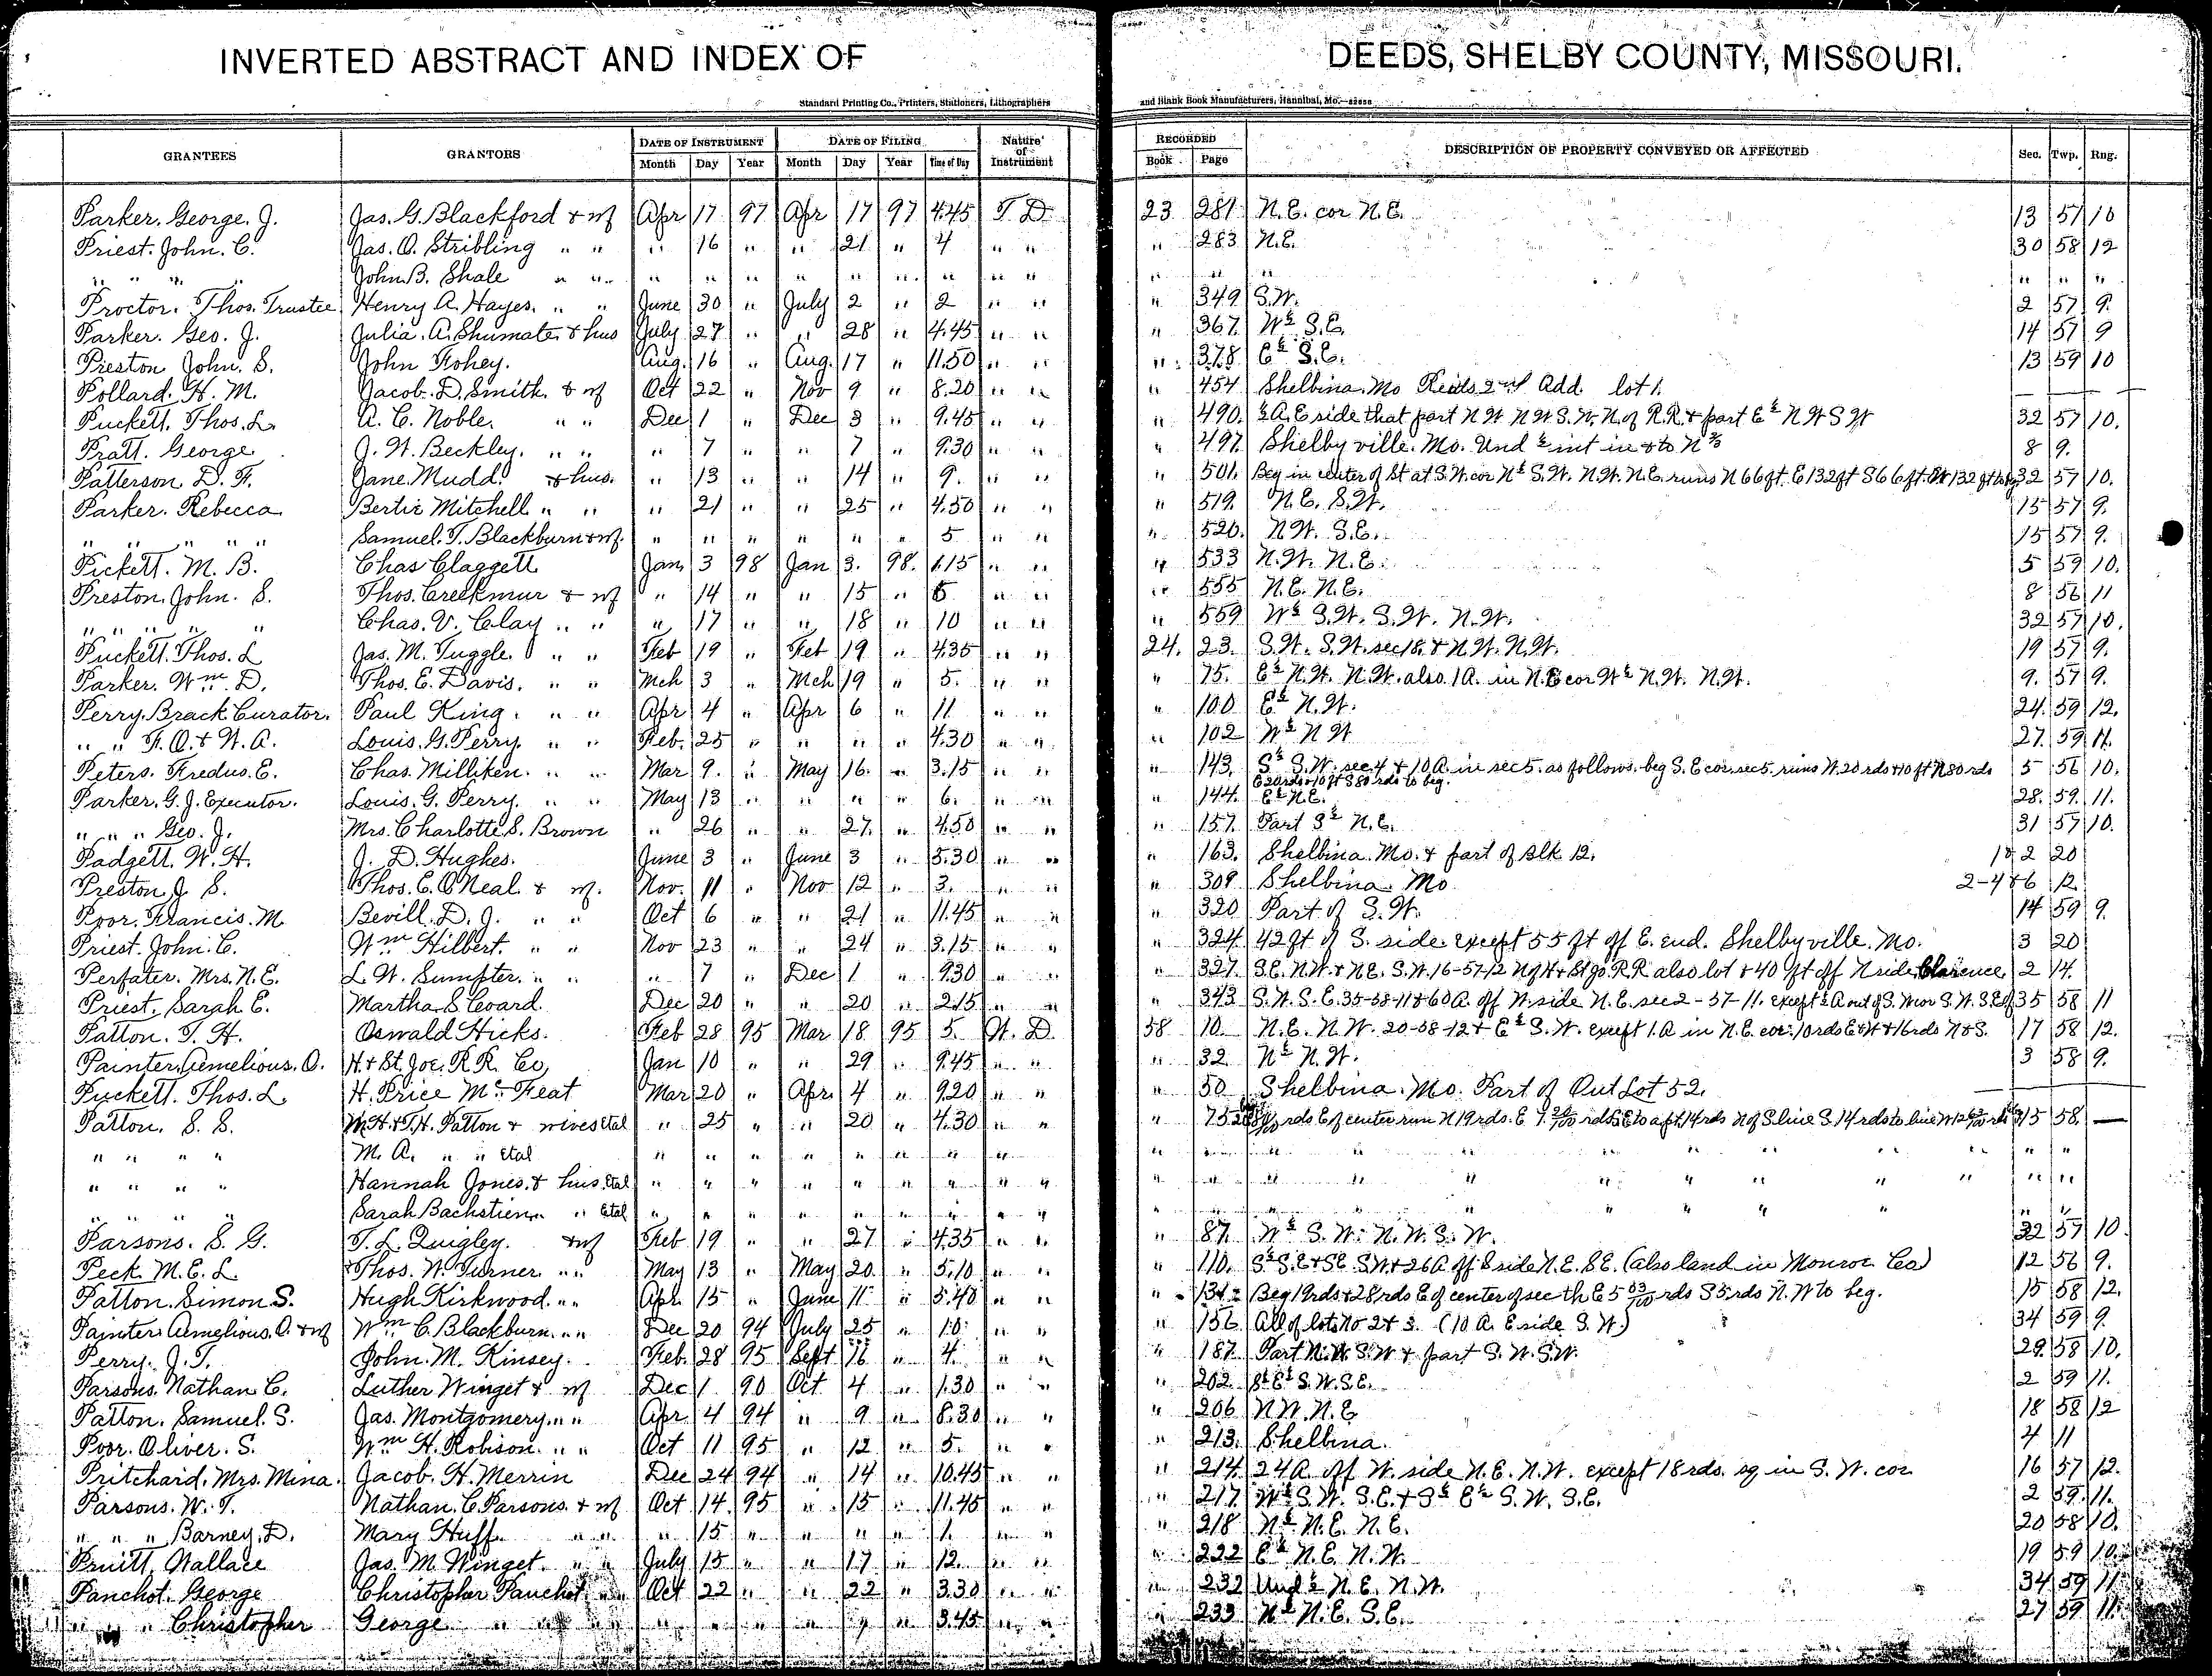 INVERTED ABSTRACT AND INDEX OF DEEDS, SHELBY COUNTY, MISSOURI.
Standard Printing Co., Printers, Stationers, Lithographers and Blank Book Manufacturers, Hannibal, Mo.
GRANTEES GRANTORS DATE OF INSTRUMENT DATE OF FILING Nature of Instrument RECORDED DESCRIPTION OF PROPERTY CONVEYED OR AFFECTED Sec. Twp. Rng.
Month Day Year Month Day Year Time of Day Book Page
Parker. George. J. Jas. G. Blackford & wf Apr 17 97 Apr 17 97 4.45 T. D. 23 281 N.E. cor N.E. 13 57 10
Priest. John. C. Jas. O. Stribling " " " 16 " " 21 " 4 " " " 283 N.E. 30 58 12
" " " " John B. Shale " " " " " " " " " " " " " " " " "
Proctor. Thos. Trustee Henry A. Hayes. " " June 30 " July 2 " 2 " " " 349 S.W. 2 57 9.
Parker. Geo. J. Julia. A. Shumate & hus July 27 " " 28 " 4.45 " " " 367. W½ S.E. 14 57 9
Preston John. S. John Fohey. Aug. 16 " Aug. 17 " 11.50 " " " 378 E½ S.E. 13 59 10
Pollard. H. M. Jacob. D. Smith. & wf Oct 22 " Nov 9 " 8.20 " " " 454 Shelbina. Mo Reids 2nd Add. lot 1.
Puckett. Thos. L. A. C. Noble. " " Dec 1 " Dec 3 " 9.45 " " " 490. ½ A. E side that part N W N W S. W. N. of R.R. & part E½ N W S W 32 57 10.
Pratt. George J. W. Beckley. " " " 7 " " 7 " 9.30 " " " 497. Shelbyville. Mo. Und ½ int in & to N ⅔ 8 9.
Patterson D. F. Jane Mudd. & hus. " 13 " " 14 " 9. " " " 501. Beg in center of St at S.W. cor N½ S.W. N.W. N.E. runs N 66 ft. E 132 ft S 66 ft. W 132 ft to beg 32 57 10.
Parker. Rebecca Bertie Mitchell " " " 21 " " 25 " 4.50 " " " 519. N.E. S.W. 15 57 9.
" " " " Samuel. T. Blackburn & wf. " " " " " " 5 " " " 520. N W. S.E. 15 57 9.
Pickett. M. B. Chas Claggett Jan 3 98 Jan 3. 98. 1.15 " " " 533 N.W. N.E. 5 59 10.
Preston. John. S. Thos. Creekmur & wf " 14 " " 15 " 5 " " " 555 N.E. N.E. 8 56 11
" " " " Chas. V. Clay " " " 17 " " 18 " 10 " " " 559 W½ S.W. S.W. N.W. 32 57 10.
Puckett. Thos. L Jas. M. Tuggle. " " Feb 19 " Feb 19 " 4.35 " " 24. 23. S.W. S.W. sec 18. & N.W. N.W. 19 57 9.
Parker. Wm. D. Thos. E. Davis. " " Mch 3 " Mch 19 " 5. " " " 75. E½ N.W. N.W. also 1 A. in N.E cor W½ N.W. N.W. 9. 57 9.
Perry. Brack Curator. Paul King. " " Apr 4 " Apr 6 " 11 " " " 100 E½ N.W. 24. 59 12.
" " F. O. & W. A. Louis. G. Perry. " " Feb. 25 " " " " 4.30 " " " 102 W½ N W 27. 59 11.
Peters. Fredus. E. Chas. Milliken. " " Mar 9. " May 16. " 3.15 " " " 143. S½ S.W. sec 4 & 10 A. in sec 5. as follows. beg S.E cor. sec 5. runs W. 20 rds & 10 ft N 80 rds 5 56 10.
E 20 rds & 10 ft S 80 rds to beg.
Parker. G. J. Executor. Louis. G. Perry. " " May 13 " " " " 6. " " " 144. E½ N.E. 28. 59. 11.
" " " Geo. J. Mrs. Charlotte S. Brown " 26 " " 27. " 4.50 " " " 157. Part S½ N.E. 31 57 10.
Padgett. W. H. J. D. Hughes. June 3 " June 3 " 5.30 " " " 163. Shelbina. Mo. & part of Blk 12. 1 & 2 20
Preston J S. Thos. E. O'Neal & wf. Nov. 11 " Nov 12 " 3. " " " 309 Shelbina. Mo 2-4 & 6 12
Poor. Francis. M Bevill. D. J. " " Oct 6 " " 21 " 11.45 " " " 320 Part of S.W. 14 59 9.
Priest. John. C. Wm Hilbert. " " Nov 23 " " 24 " 3.15 " " " 324. 42 ft of S. side except 55 ft off E. end. Shelbyville. Mo. 3 20
Perfater. Mrs. N. E. L. W. Sumpter. " " " 7 " Dec 1 " 9.30 " " " 327. S.E. N.W. & N.E. S.W. 16-57-12 N of H & St Jo. R.R also lot & 40 ft off N side Clarence 2 14.
Priest. Sarah E. Martha. S Coard. Dec 20 " " 20 " 2.15 " " " 343 S.W. S.E. 35-58-11 & 60 A. off W. side N.E. sec 2-57-11. except ½ A out of S.W cor S.W. S.E of 35 58 11
Patton. T. H. Oswald Hicks. Feb 28 95 Mar 18 95 5. W. D. 58 10. N.E. N.W. 20-58-12 & E½ S.W. except 1. A in N.E. cor. 10 rds E & W & 16 rds N & S. 17 58 12.
Painter. Amelious. O. H. & St. Joe. R R. Co, Jan 10 " " 29 " 9.45 " " " 32 N½ N.W. 3 58 9.
Puckett. Thos. L. H. Price Mc Feat Mar 20 " Apr. 4 " 9.20 " " " 50 Shelbina. Mo. Part of Out Lot 52.
Patton. S. S. W. H. & T. H. Patton & wives et al " 25 " " 20 " 4.30 " " " 75 rds E of center run N 19 rds. E rds S E to a pt. 14 rds N of S line S. 14 rds to line W 15 58. —
" " " " M. A. " " et al " " " " " " " " " " " " " " " " "
" " " " Hannah Jones. & hus. et al " " " " " " " " " " " " " " " " "
" " " " Sarah Bachstien " et al " " " " " " " " " " " " " " " " "
Parsons. S. G. T. L. Quigley. & wf Feb 19 " " 27 " 4.35 " " " 87. W½ S. W. N. W. S. W. 32 57 10.
Peck M. E. L. Thos. W. Turner. " " May 13 " May 20. " 5.10 " " " 110. S½ S.E & SE. SW. & 26 A off S side N.E. S E. (also land in Monroe Co) 12 56 9.
Patton. Simon S. Hugh Kirkwood. " " Apr. 15 " June 11 " 5.40 " " " 134 Beg 19 rds & 28 rds E of center of sec th E 5 03/100 rds S 5 rds N. W to beg. 15 58 12.
Painter Amelious. O. & wf Wm C. Blackburn. " " Dec 20 94 July 25 " 10 " " " 156 All of lots No 2 & 3. (10 A. E side S. W.) 34 59 9.
Perry. J. T. John. M. Kinsey. Feb. 28 95 Sept 16 " 4. " " " 187. Part N.W. S.W & part S. W. S.W. 29. 58 10.
Parsons. Nathan C. Luther Winget & wf Dec 1 90 Oct 4 " 1.30 " " " 202 S½ E½ S.W. S.E. 2 59 11.
Patton. Samuel. S. Jas. Montgomery. " " Apr 4 94 " 9 " 8.30 " " " 206 N W. N. E 18 58 12
Poor. Oliver. S. Wm H. Robison. " " Oct 11 95 " 12 " 5. " " " 213. Shelbina. 4 11
Pritchard. Mrs. Mina. Jacob. H. Merrin Dec 24 94 " 14 " 10.45 " " " 214. 24 A. off W. side N.E. N.W. except 18 rds. sq in S. W. cor 16 57 12.
Parsons. W. T. Nathan. C. Parsons. & wf Oct 14. 95 " 15 " 11.45 " " " 217 W½ S.W. S.E. & S½ E½ S.W. S.E. 2 59. 11.
" " " Barney. D. Mary Huff. " " " 15 " " " " 1. " " " 218 N½ N.E. N.E. 20 58 10.
Pruitt Wallace Jas. M Winget. " " July 15 " " 17 " 12. " " " 222 E½ N.E. N.W. 19 59 10.
Panchot. George Christopher Panchot " " Oct 22 " " 22 " 3.30 " " " 232 Und ½ N. E. N.W. 34 59 11.
" " " Christopher George " " " " " " " " 3.45 " " " 233 N½ N.E. S.E. 27 59 11.